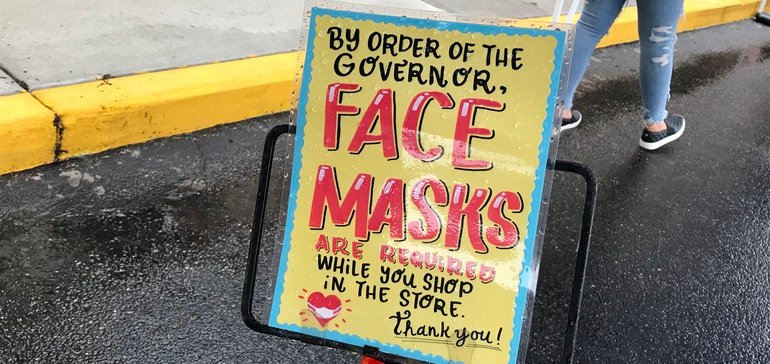 BY ORDER OF THE
GOVERNOR,
FACE
MASKS
ARE REQUIRED
WHILE YOU SHOP
IN THE STORE.
Thank you!